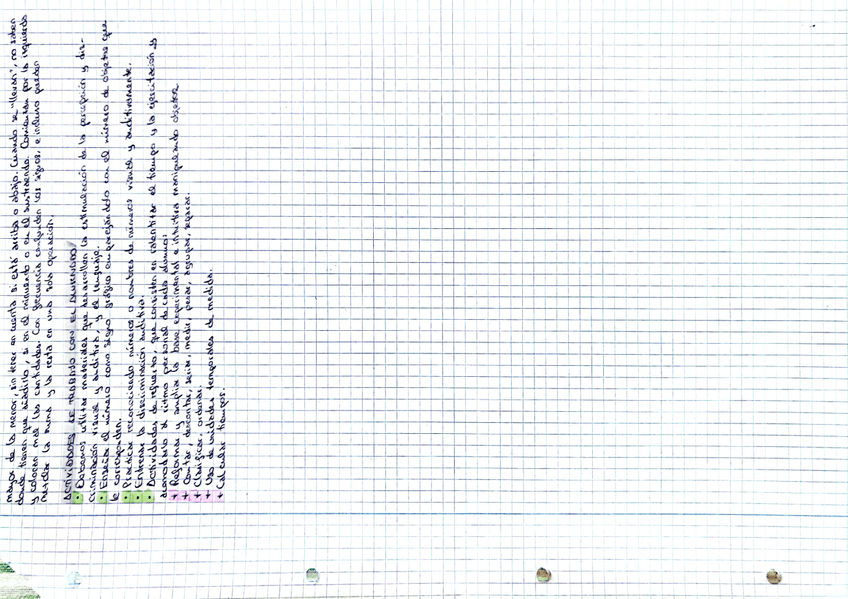 mayor de la menor, sin tener en cuenta si está arriba o abajo. Cuando se "llevan", no saben
donde tienen que añadirlo, si en el minuendo o en el sustraendo. Comienzan por la izquierda
y colocan mal las cantidades. Con frecuencia confunden los signos, e incluso pueden
mezclar la suma y la resta en una sola operación.
ACTIVIDADES DE TRABAJO CON EL
• Debemos utilizar materiales que desarrollen la estimulación de la percepción y dis-
criminación visual y auditiva, y el lenguaje.
• Enseñar el número como signo gráfico emparejándolo con el número de objetos que
le corresponden.
• Practicar reconociendo números o nombres de números visual y auditivamente.
• Entrenar la discriminación auditiva.
• Actividades de refuerzo, que consisten en ralentizar el tiempo y la ejercitación y
acomodarlo al ritmo personal de cada alumno:
+ Reformar y ampliar la base experimental e intuitiva manipulando objetos.
+ Contar, descontar, seriar, medir, pesar, agrupar, separar.
+ Clasificar, ordenar.
+ Uso de unidades temporales de medida.
+ Calcular tiempos.